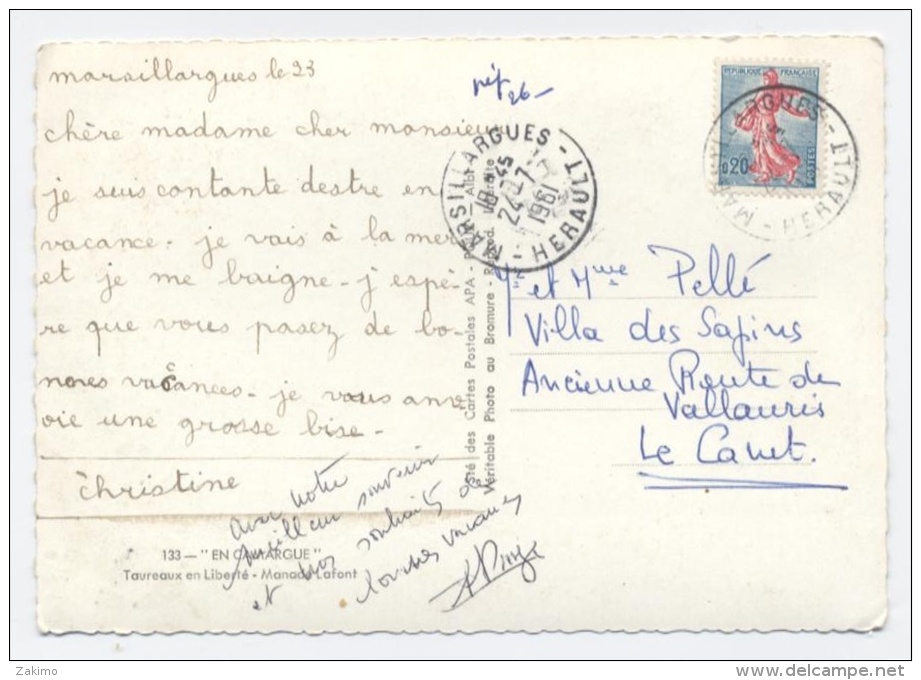 marsillargues le 23
chère madame cher monsieur
je suis contante destre en
vacance. je vais à la mer
et je me baigne - j'espè-
re que vous pasez de bo-
nnes vacances - je vous anv-
oie une grosse bise -
christine
avec notre
meilleur souvenir
et nos souhaits de
bonnes vacances
133 — "EN CAMARGUE"
Taureaux en Liberté - Manade Lafont
Sté des Cartes Postales APA -
Véritable Photo au Bromure -
rép 26 -
MARSILLARGUES - HERAULT
18 H 45
24 - 7
1961
REPUBLIQUE FRANÇAISE
0,20
POSTES
MARSILLARGUES - HERAULT
Mr et Mme Pellé
Villa des Sapins
Ancienne Route de
Vallauris
Le Canet.
Zakimo
delcampe.net